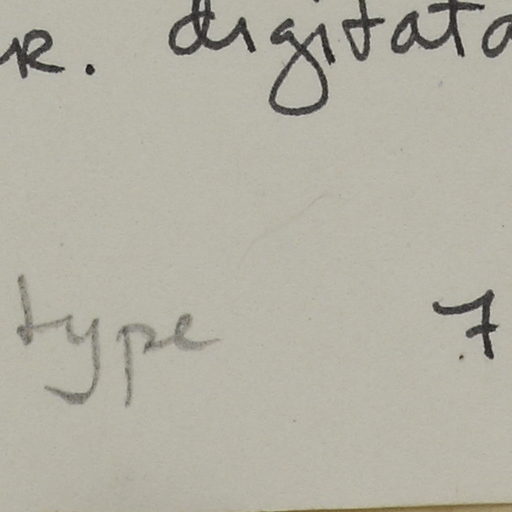 R. digitata
type 7